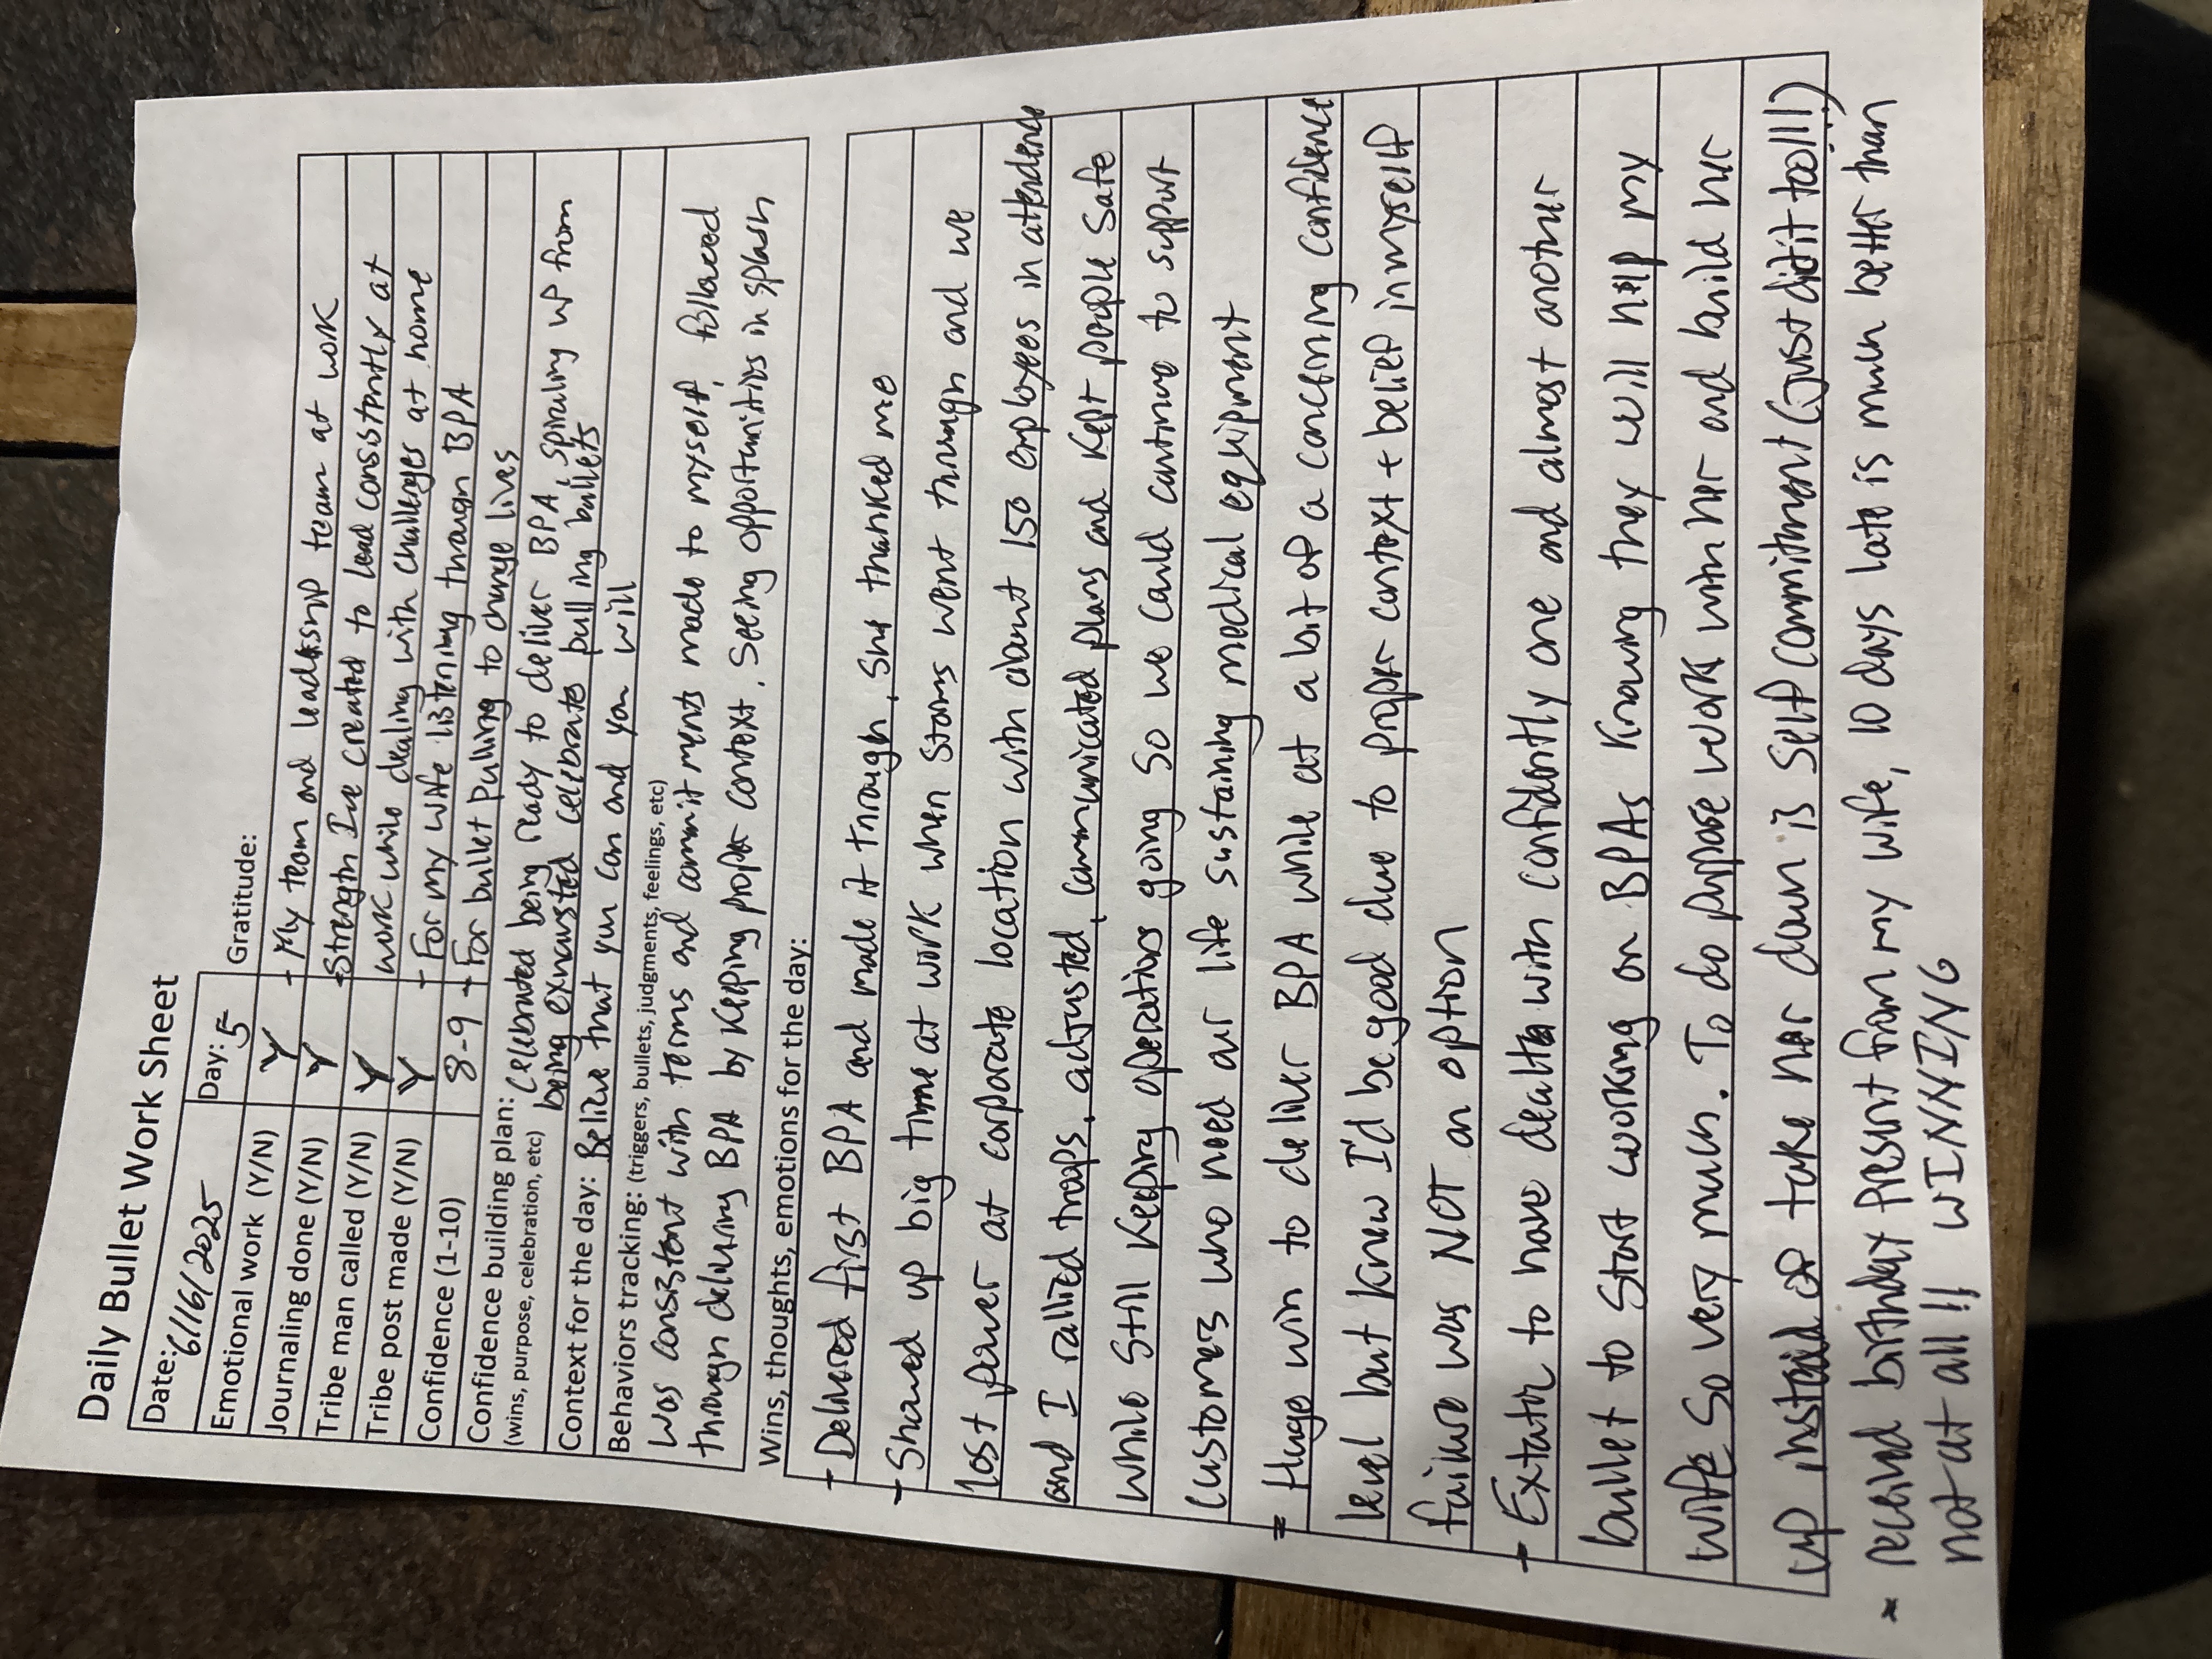 Daily Bullet Work Sheet
Date: 6/16/2025 Day: 5 Gratitude:
Emotional work (Y/N) Y - My team and leadership team at work
Journaling done (Y/N) Y - Strength I've created to lead consistently at
Tribe man called (Y/N) Y work while dealing with challenges at home
Tribe post made (Y/N) Y - For my wife listening through BPA
Confidence (1-10) 8-9 - For bullet pulling to change lives
Confidence building plan: Celebrated being ready to deliver BPA, spiraling up from
(wins, purpose, celebration, etc) being exhausted celebrate pulling bullets
Context for the day: Believe that you can and you will
Behaviors tracking: (triggers, bullets, judgments, feelings, etc)
Was consistent with terms and commitments made to myself, followed
through delivering BPA by keeping proper context, seeing opportunities in splash
Wins, thoughts, emotions for the day:
- Delivered first BPA and made it through, she thanked me
- Showed up big time at work when storms went through and we
lost power at corporate location with about 150 employees in attendence
and I rallied troops, adjusted, communicated plans and kept people safe
while still keeping operations going so we could continue to support
customers who need our life sustaining medical equipment
- Huge win to deliver BPA while at a bit of a concerning confidence
level but knew I'd be good due to proper context + belief in myself
failure was NOT an option
- to have dealt with confidently one and almost another
bullet to start working on BPAs knowing they will help my
wife so very much. To do purpose work with her and build her
up instead of take her down is self commitment (just did it too!!!)
* received birthday present from my wife, 10 days late is much better than
not at all!! WINNING